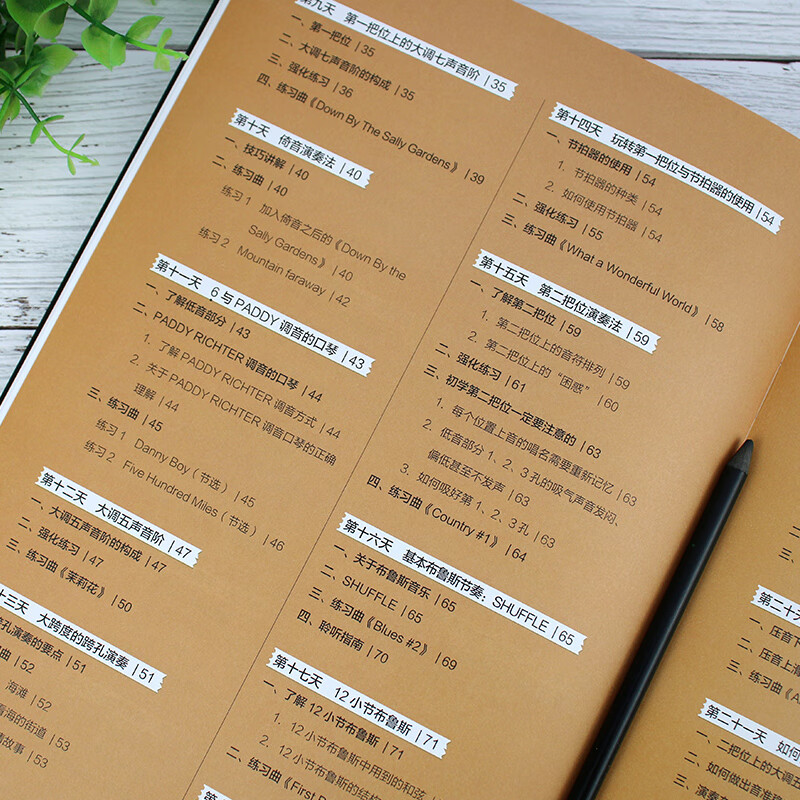 第九天 第一把位上的大调七声音阶 | 35
一、第一把位 | 35
二、大调七声音阶的构成 | 35
三、强化练习 | 36
四、练习曲《Down By The Sally Gardens》 | 39
第十天 倚音演奏法 | 40
一、技巧讲解 | 40
二、练习曲 | 40
练习 1 加入倚音之后的《Down By the
Sally Gardens》 | 40
练习 2 Mountain faraway | 42
第十一天 6 与 PADDY 调音的口琴 | 43
一、了解低音部分 | 43
二、PADDY RICHTER 调音的口琴 | 44
1. 了解 PADDY RICHTER 调音方式 | 44
2. 关于 PADDY RICHTER 调音口琴的正确
理解 | 44
三、练习曲 | 45
练习 1 Danny Boy（节选） | 45
练习 2 Five Hundred Miles（节选） | 46
第十二天 大调五声音阶 | 47
一、大调五声音阶的构成 | 47
二、强化练习 | 47
三、练习曲《茉莉花》 | 50
十三天 大跨度的跨孔演奏 | 51
孔演奏的要点 | 51
曲 | 52
海滩 | 52
看海的街道 | 53
情故事 | 53
第十四天 玩转第一把位与节拍器的使用 | 54
一、节拍器的使用 | 54
1. 节拍器的种类 | 54
2. 如何使用节拍器 | 54
二、强化练习 | 55
三、练习曲《What a Wonderful World》 | 58
第十五天 第二把位演奏法 | 59
一、了解第二把位 | 59
1. 第二把位上的音符排列 | 59
2. 第二把位上的“困惑” | 60
二、强化练习 | 61
三、初学第二把位一定要注意的 | 63
1. 每个位置上音的唱名需要重新记忆 | 63
2. 低音部分 1、2、3 孔的吸气声音发闷、
偏低甚至不发声 | 63
3. 如何吸好第 1、2、3 孔 | 63
四、练习曲《Country #1》 | 64
第十六天 基本布鲁斯节奏：SHUFFLE | 65
一、关于布鲁斯音乐 | 65
二、SHUFFLE | 65
三、练习曲《Blues #2》 | 69
四、聆听指南 | 70
第十七天 12 小节布鲁斯 | 71
一、了解 12 小节布鲁斯 | 71
1. 12 小节布鲁斯中用到的和弦
2. 12 小节布鲁斯的结构
二、练习曲《First
第二十
一、压音下
二、压音上滑
三、练习曲《A
第二十一天 如何
一、二把位上的大调
二、如何做出音准
三、演奏